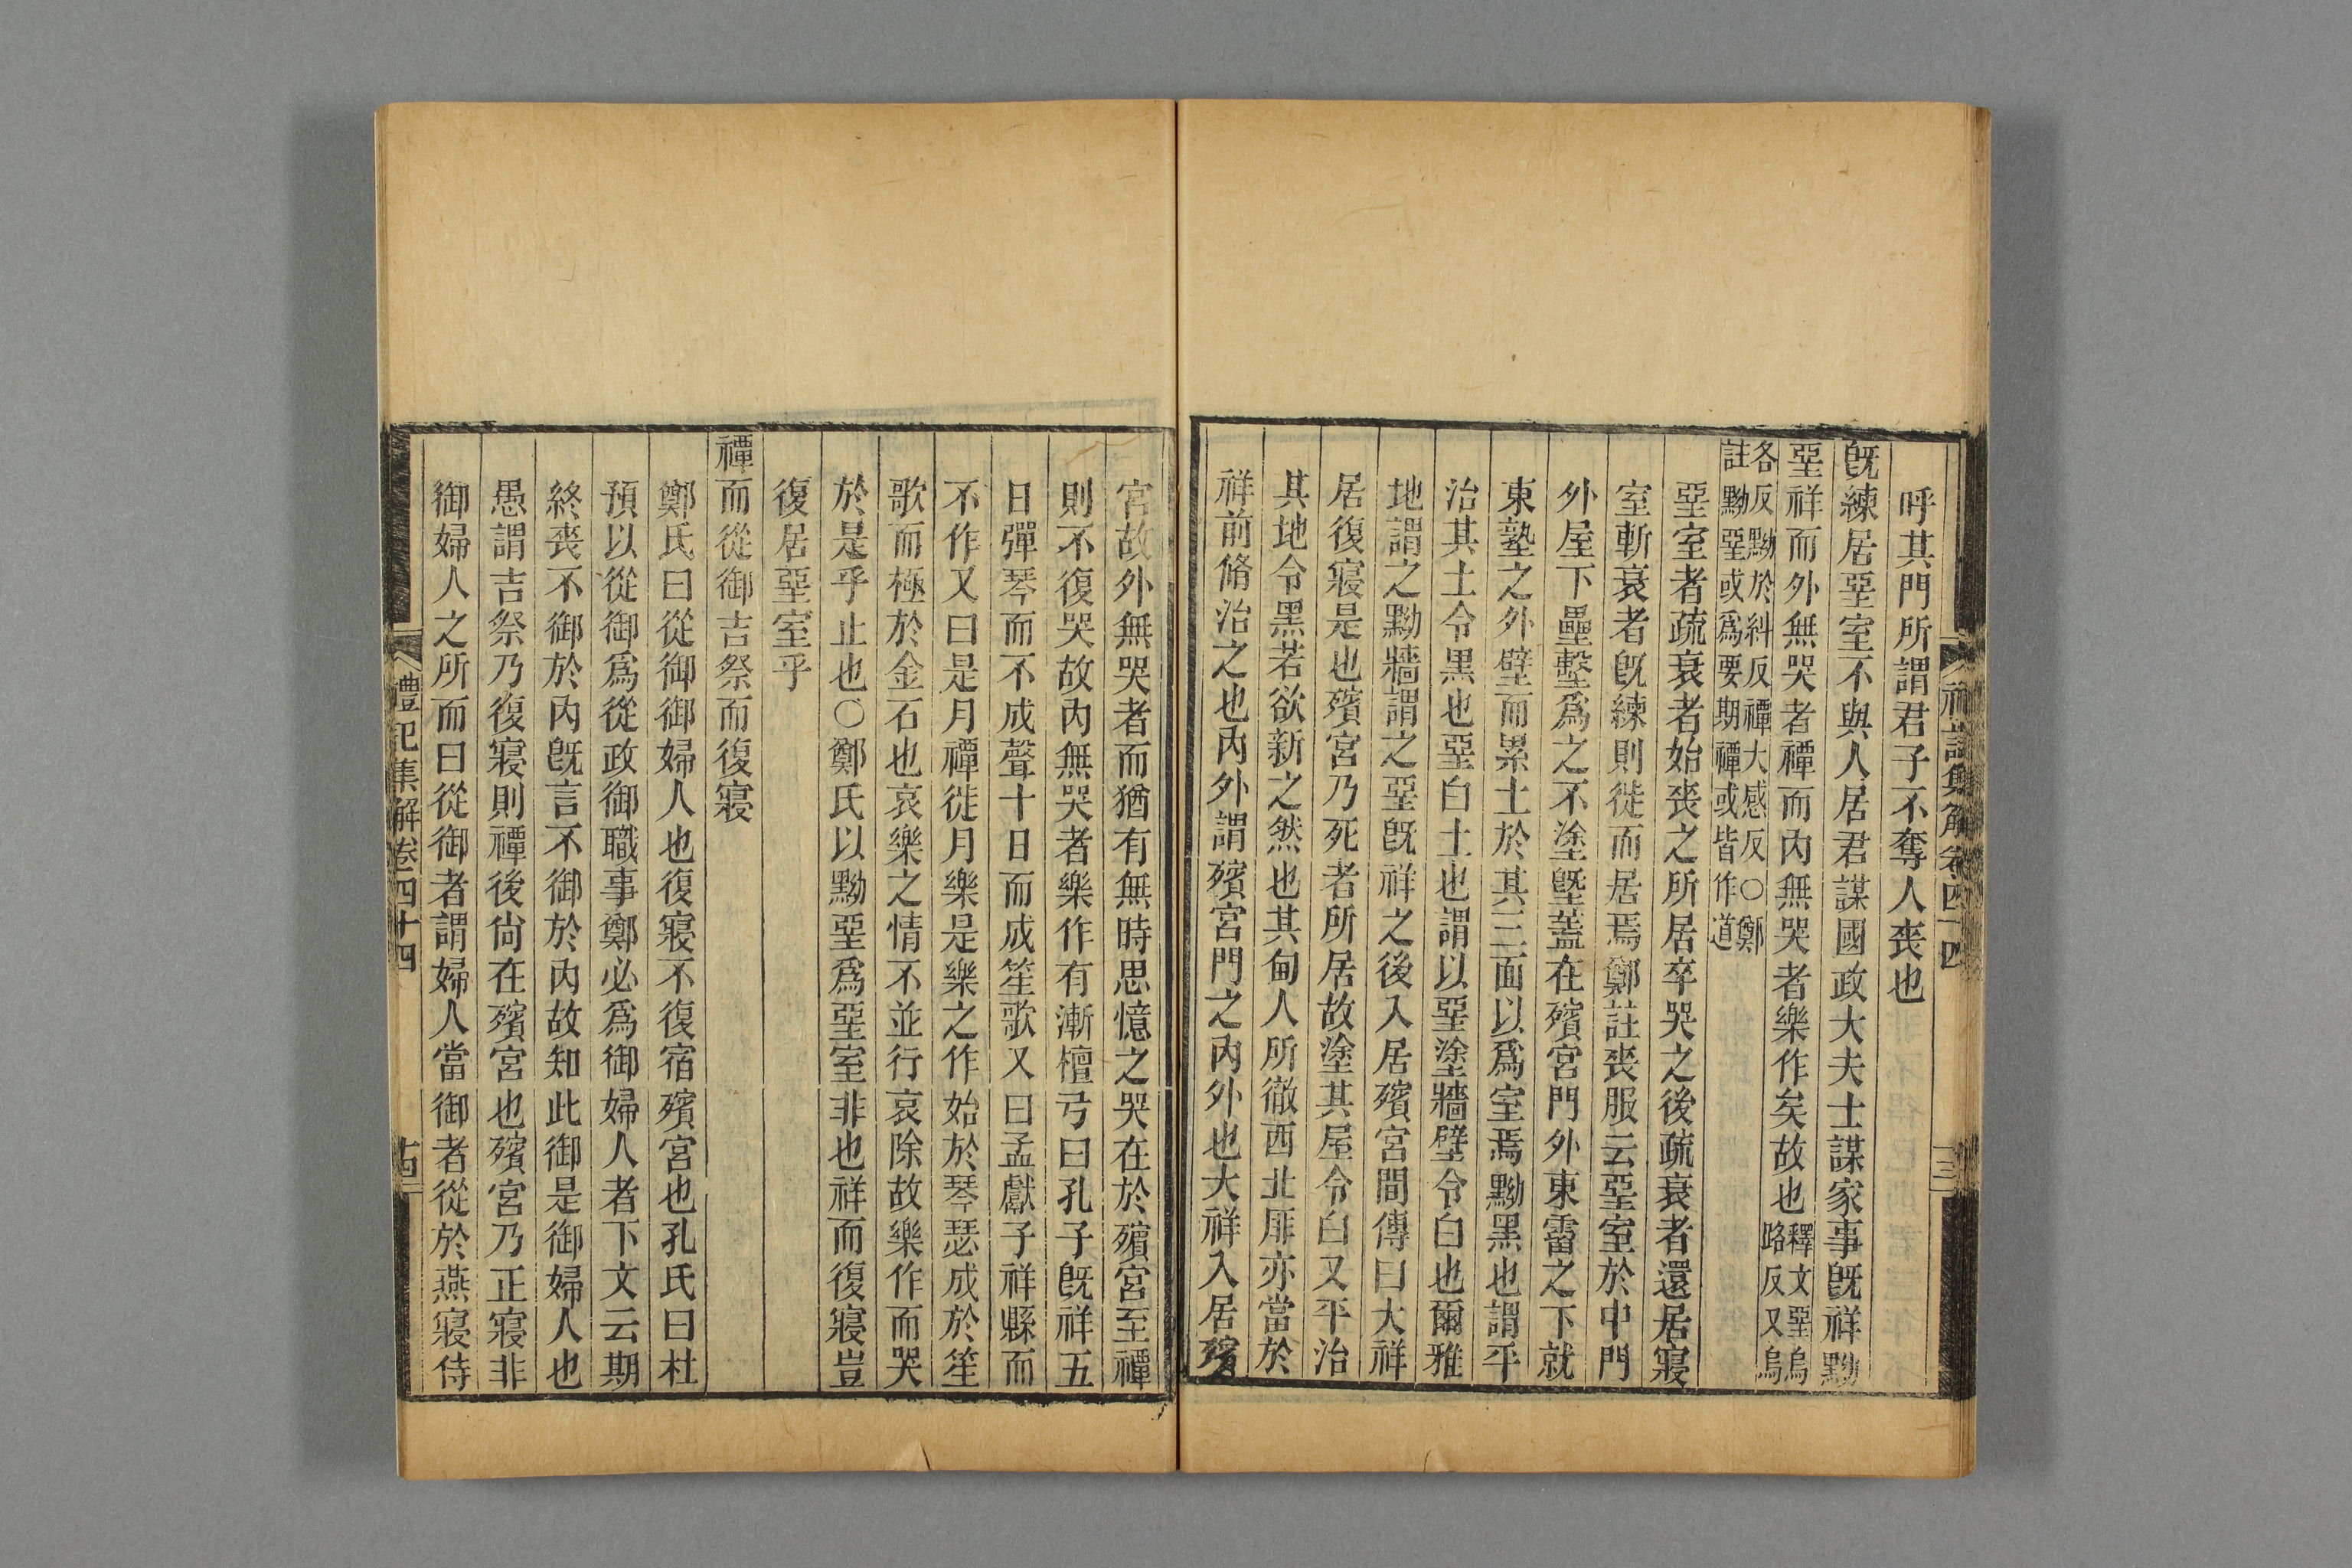 呼其門所謂君子不奪人喪也
旣練居堊室不與人居君謀國政大夫士謀家事旣祥黝
堊祥而外無哭者禫而內無哭者樂作矣故也釋文堊烏路反又烏
各反黝於糾反禫大感反○鄭註黝堊或爲要期禫或皆作道
堊室者疏衰者始喪之所居卒哭之後疏衰者還居寢
室斬衰者旣練則徙而居焉鄭註喪服云堊室於中門
外屋下壘墼爲之不塗墍蓋在殯宮門外東霤之下就
東塾之外壁而累土於其三面以爲室焉黝黑也謂平
治其土令黑也堊白土也謂以堊塗牆壁令白也爾雅
地謂之黝牆謂之堊旣祥之後入居殯宮間傳曰大祥
居復寢是也殯宮乃死者所居故塗其屋令白又平治
其地令黑若欲新之然也其甸人所徹西北厞亦當於
祥前脩治之也內外謂殯宮門之內外也大祥入居殯
宮故外無哭者而猶有無時思憶之哭在於殯宮至禫
則不復哭故內無哭者樂作有漸檀弓曰孔子旣祥五
日彈琴而不成聲十日而成笙歌又曰孟獻子祥縣而
不作又曰是月禫徙月樂是樂之作始於琴瑟成於笙
歌而極於金石也哀樂之情不並行哀除故樂作而哭
於是乎止也○鄭氏以黝堊爲堊室非也祥而復寢豈
復居堊室乎
禫而從御吉祭而復寢
鄭氏曰從御御婦人也復寢不復宿殯宮也孔氏曰杜
預以從御爲從政御職事鄭必爲御婦人者下文云期
終喪不御於內旣言不御於內故知此御是御婦人也
愚謂吉祭乃復寢則禫後尙在殯宮也殯宮乃正寢非
御婦人之所而曰從御者謂婦人當御者從於燕寢侍
禮記集解卷四十四
十四